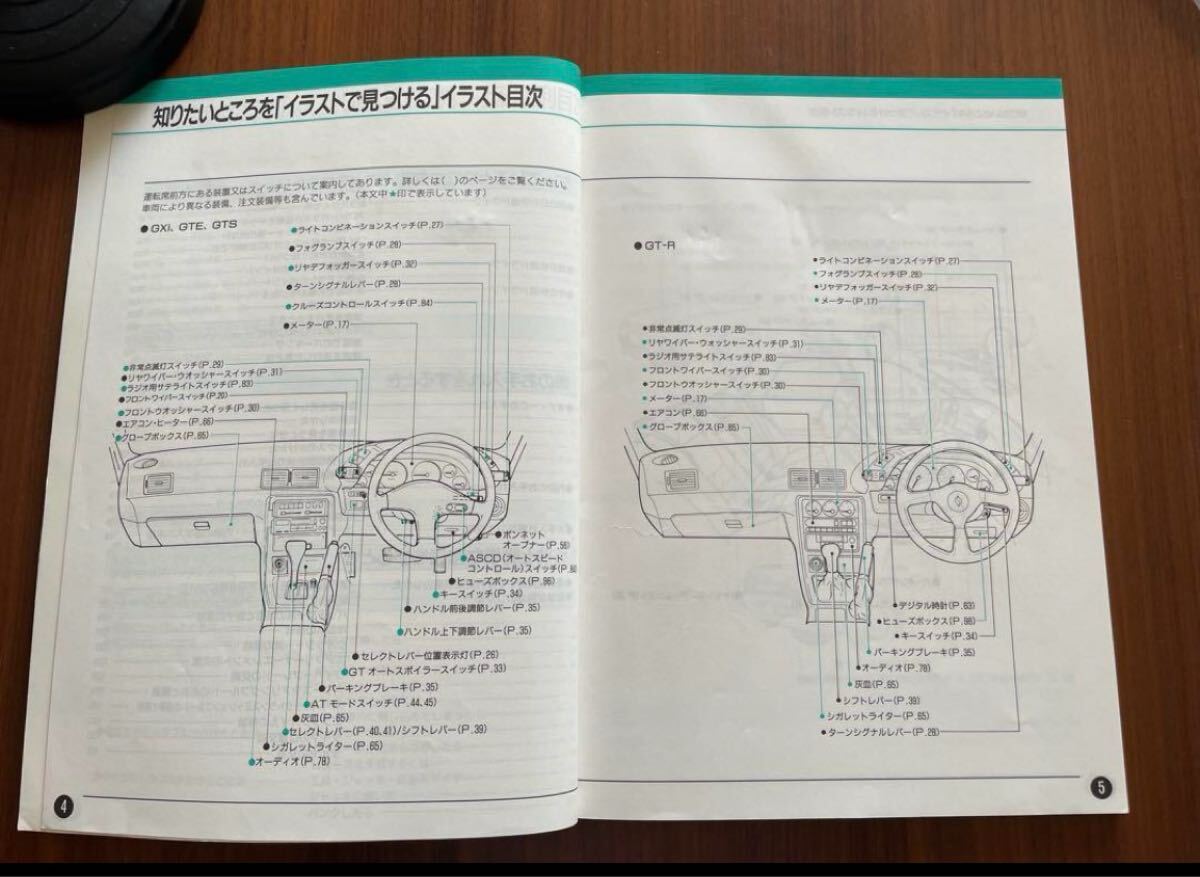 知りたいところを「イラストで見つける」イラスト目次
運転席前方にある装置又はスイッチについて案内してあります。詳しくは( )のページをご覧ください。
車両により異なる装備、注文装備等も含んでいます。(本文中★印で表示しています)
●GXi、GTE、GTS
●ライトコンビネーションスイッチ(P.27)
●フォグランプスイッチ(P.28)
●リヤデフォッガースイッチ(P.32)
●ターンシグナルレバー(P.28)
●クルーズコントロールスイッチ(P.84)
●メーター(P.17)
●非常点滅灯スイッチ(P.29)
●リヤワイパー・ウオッシャースイッチ(P.31)
●ラジオ用サテライトスイッチ(P.83)
●フロントワイパースイッチ(P.20)
●フロントウオッシャースイッチ(P.30)
●エアコン・ヒーター(P.66)
●グローブボックス(P.65)
●ボンネット
オープナー(P.56)
●ASCD(オートスピード
コントロール)スイッチ(P.
●ヒューズボックス(P.96)
●キースイッチ(P.34)
●ハンドル前後調節レバー(P.35)
●ハンドル上下調節レバー(P.35)
●セレクトレバー位置表示灯(P.26)
●GTオートスポイラースイッチ(P.33)
●パーキングブレーキ(P.35)
●ATモードスイッチ(P.44、45)
●灰皿(P.65)
●セレクトレバー(P.40、41)/シフトレバー(P.39)
●シガレットライター(P.65)
●オーディオ(P.78)
4
●GT-R
●ライトコンビネーションスイッチ(P.27)
●フォグランプスイッチ(P.28)
●リヤデフォッガースイッチ(P.32)
●メーター(P.17)
●非常点滅灯スイッチ(P.29)
●リヤワイパー・ウォッシャースイッチ(P.31)
●ラジオ用サテライトスイッチ(P.83)
●フロントワイパースイッチ(P.30)
●フロントウオッシャースイッチ(P.30)
●メーター(P.17)
●エアコン(P.66)
●グローブボックス(P.65)
●デジタル時計(P.63)
●ヒューズボックス(P.96)
●キースイッチ(P.34)
●パーキングブレーキ(P.35)
●オーディオ(P.78)
●灰皿(P.65)
●シフトレバー(P.39)
●シガレットライター(P.65)
●ターンシグナルレバー(P.28)
5